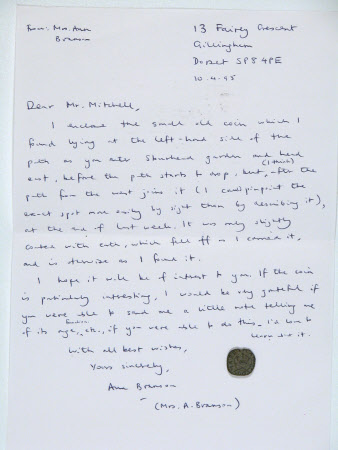 From: Mrs. Ann
Branson
13 Fairey Crescent
Gillingham
Dorset SP8 4PE
10.4.95
Dear Mr. Mitchell,
I enclose the small old coin which I
found lying at the left-hand side of the
path as you enter Stourhead garden and head
east, before the path starts to drop, but, (I think) after the
path from the west joins it (I could pinpoint the
exact spot more easily by sight than by describing it),
at the end of last week. It was only slightly
coated with earth, which fell off as I carried it,
and is otherwise as I found it.
I hope it will be of interest to you. If the coin
is particularly interesting, I would be very grateful if
you were able to send me a little note telling me
of its age, etc., if you were able to do this. I'd love to
know about it.
With all best wishes,
Yours sincerely,
Ann Branson
(Mrs. A. Branson)